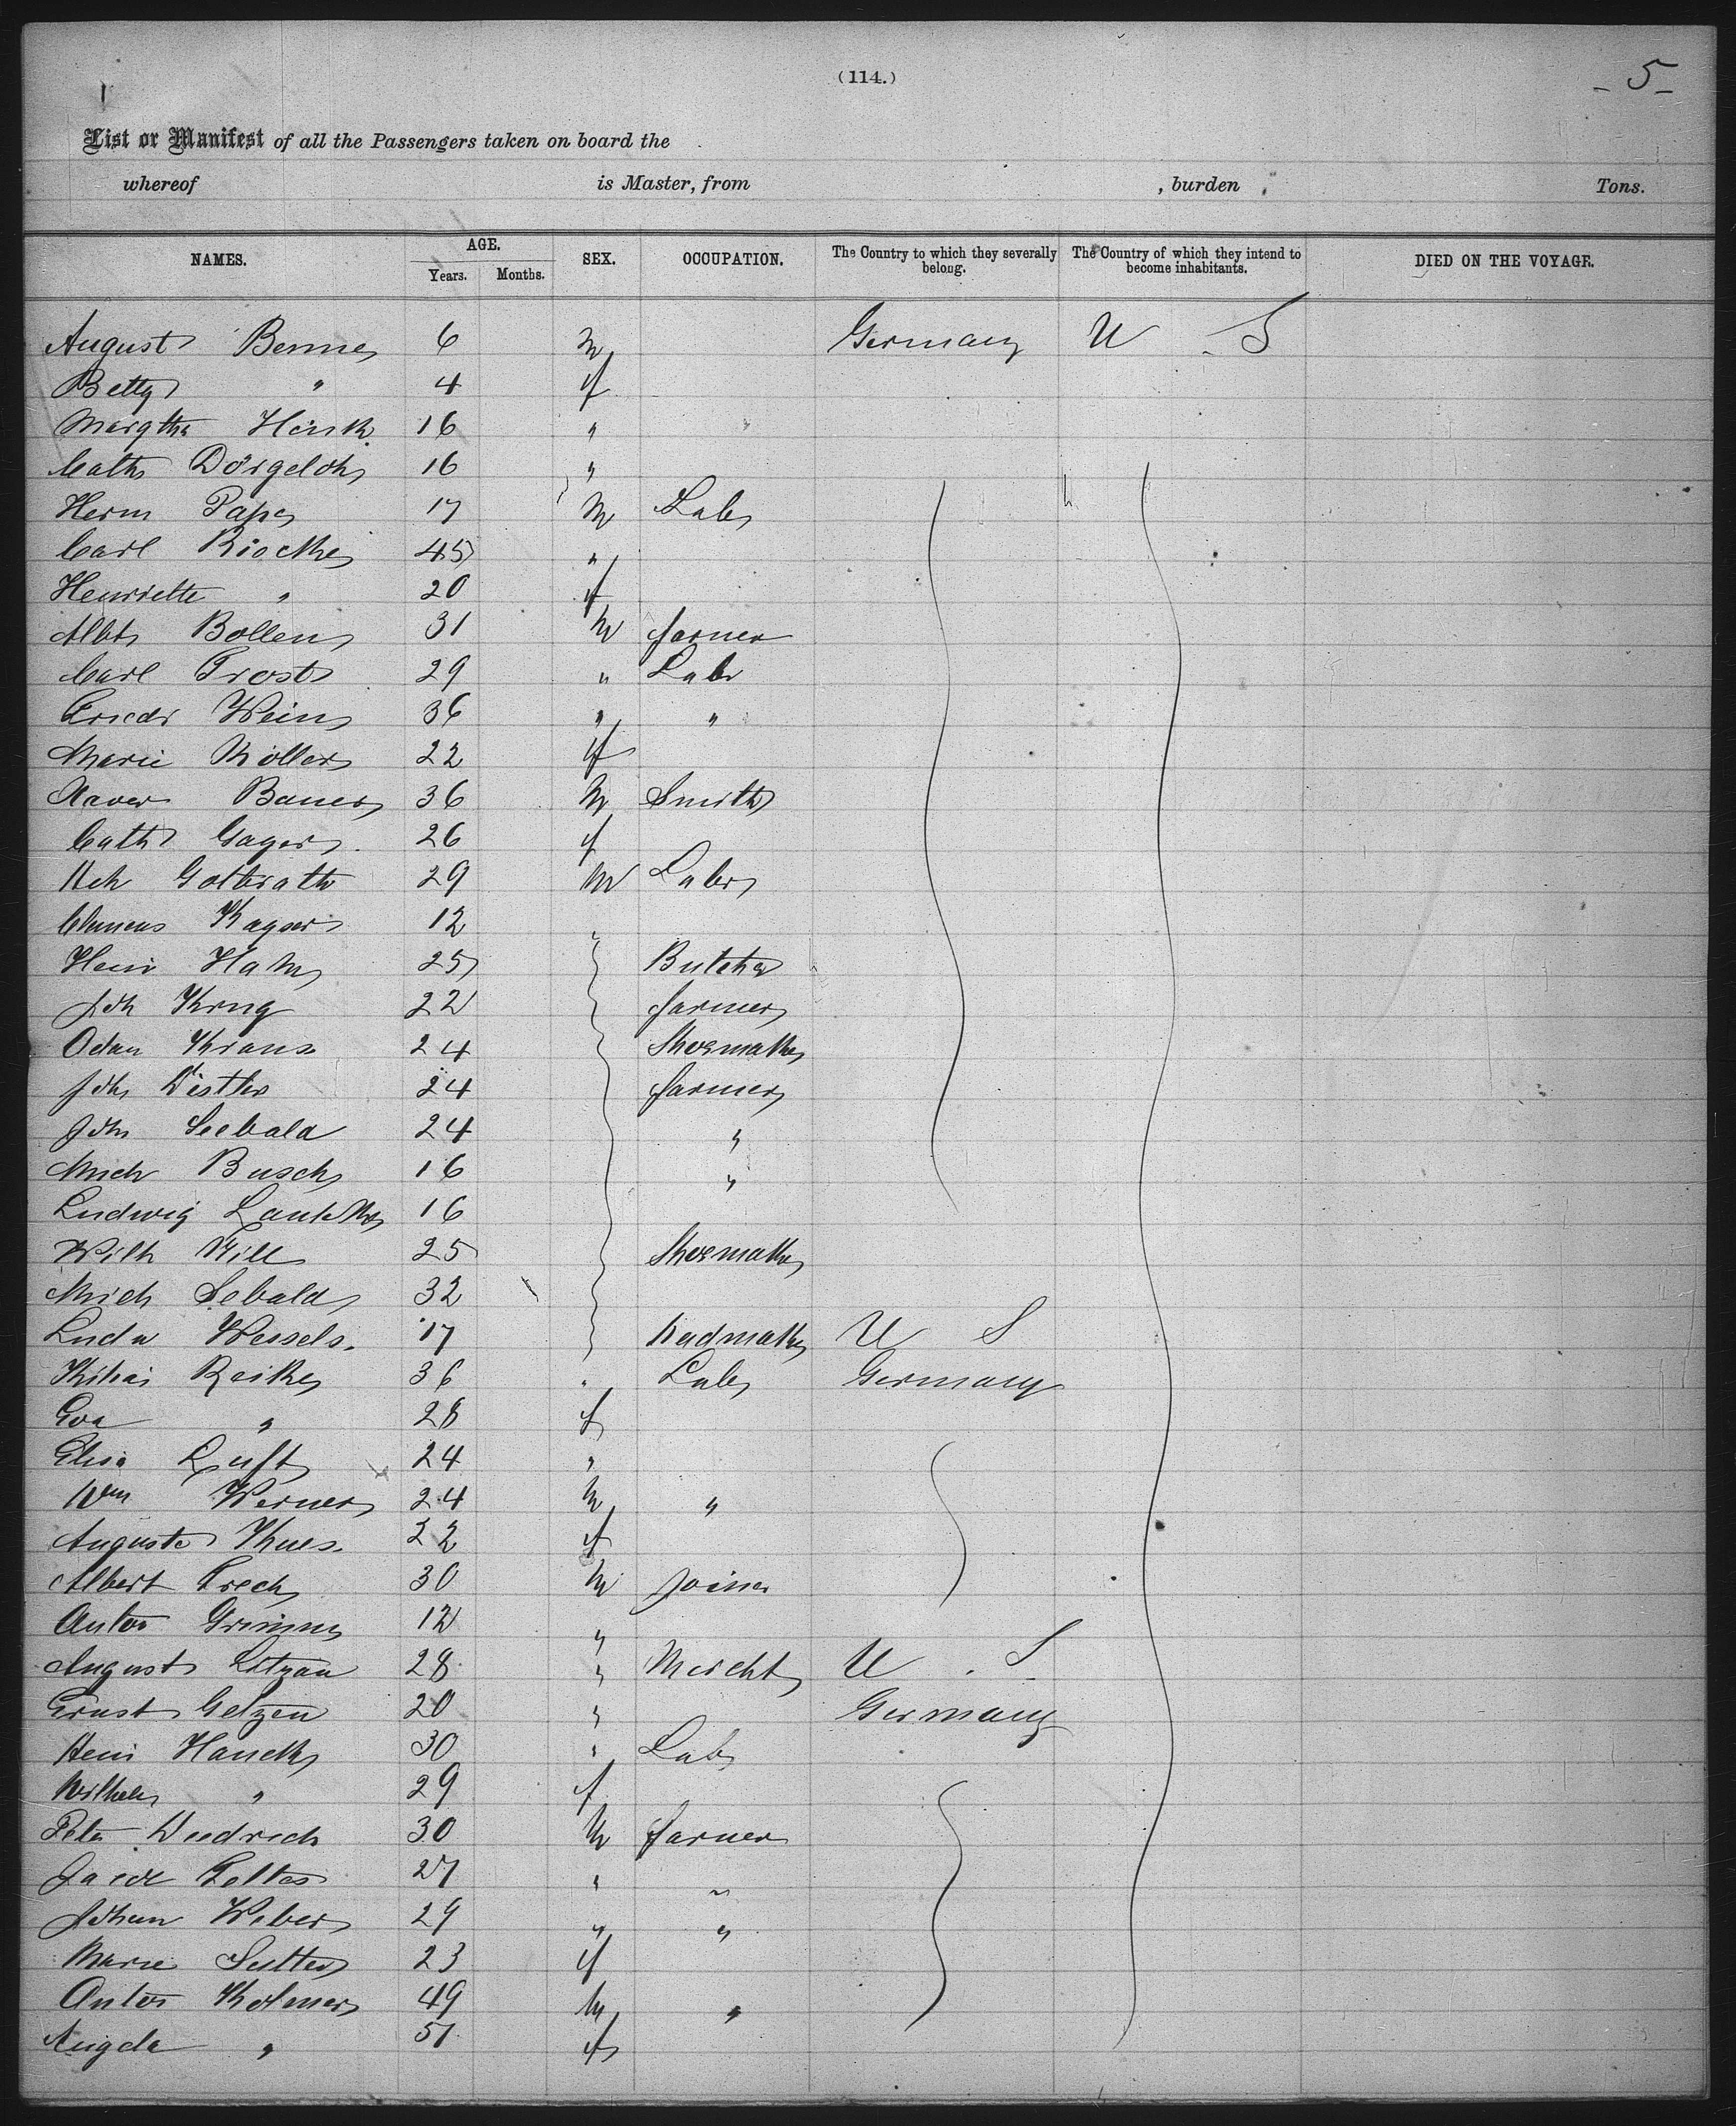 (114.)
- 5 -
List or Manifest of all the Passengers taken on board the
whereof is Master, from , burden Tons.
NAMES. AGE. SEX. OCCUPATION. The Country to which they severally belong. The Country of which they intend to become inhabitants. DIED ON THE VOYAGE.
Years. Months.
August 6 m Germany U . S
Betty " 4 f
Margtha 16 "
Cath Dörgeloh 16 "
Herm Pape 17 m Lab
Carl 45 "
Henriette " 20 f
Albt Bollen 31 m farmer
Carl Trost 29 " Labr
Friedr Wein 36 " "
Marie 22 f
Xaver Bauer 36 m Smith
Cath 26 f
Hch 29 m Labr
Clemens Kayser 12 "
Heinr Hahn 25 Butcher
Joh Krug 22 farmer
Adam Kraus 24 Shoemaker
Joh Distler 24 farmer
Joh Seebald 24 "
Mich Busch 16 "
Ludwig 16
Wilh Hill 25 Shoemaker
Mich Sebald 32
Ludw Wessels. 17 U S
36 " Lab Germany
Eva " 28 f
Elisa Luft 24 "
Wm Werner 24 m "
Auguste 22 f
Albert Frech 30 m Joiner
Anton Grimm 12 "
August Litzau 28 " Mercht U . S
Ernst Getzen 20 " Germany
Heinr Hauck 30 " Lab
Wilhelm " 29 f
Peter Diedrich 30 m farmer
Jacob Feltes 27 " "
Johann Weber 29 " "
Marie Sutter 23 f
Anton 49 m "
Angela " 51 f